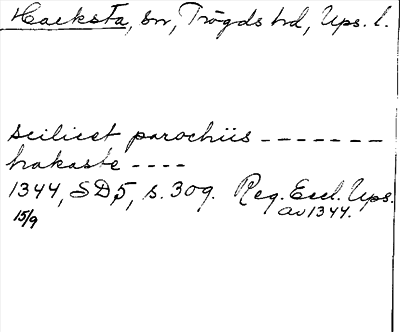 Hacksta, sn, Trögds hd, Ups. l.
scilicet parochiis -------
hakaste ----
1344, SD5, s. 309. Reg. Eccl. Ups.
15/9 av 1344.